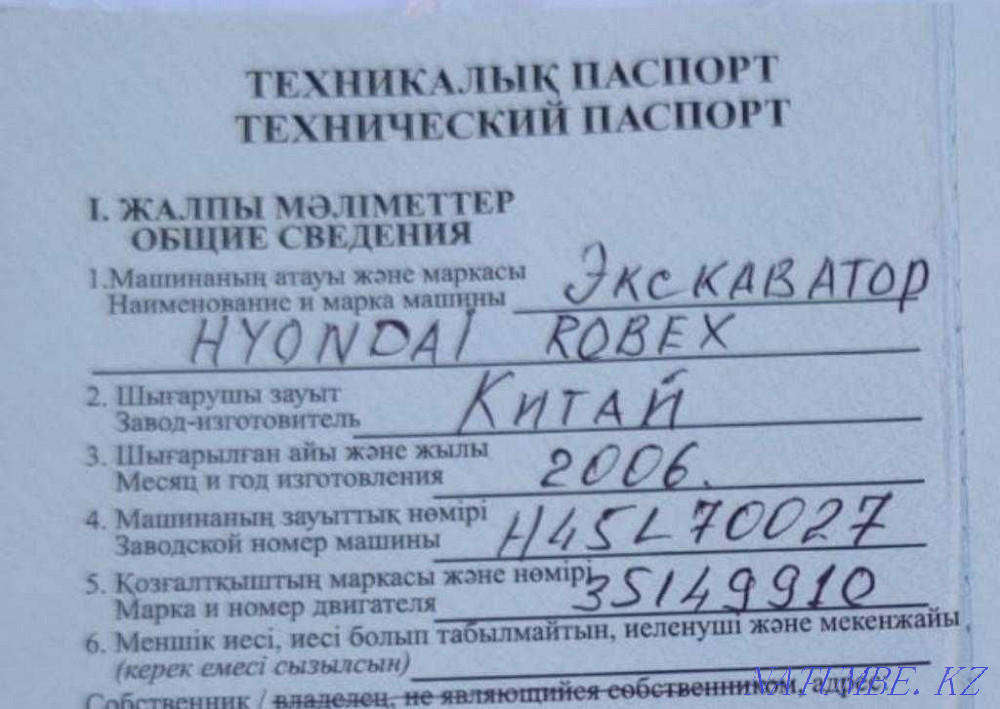 ТЕХНИКАЛЫҚ ПАСПОРТ
ТЕХНИЧЕСКИЙ ПАСПОРТ
I. ЖАЛПЫ МӘЛІМЕТТЕР
ОБЩИЕ СВЕДЕНИЯ
1.Машинаның атауы және маркасы
Наименование и марка машины
Экскаватор
HYONDAI ROBEX
2. Шығарушы зауыт
Завод-изготовитель
Китай
3. Шығарылған айы және жылы
Месяц и год изготовления
2006.
4. Машинаның зауыттық нөмірі
Заводской номер машины
H45L70027
5. Қозғалтқыштың маркасы және нөмірі
Марка и номер двигателя
35149910
6. Меншік иесі, иесі болып табылмайтын, иеленуші және мекенжайы
(керек емесі сызылсын)
Собственник / владелец, не являющийся собственником, адрес
NAIUMBE.KZ